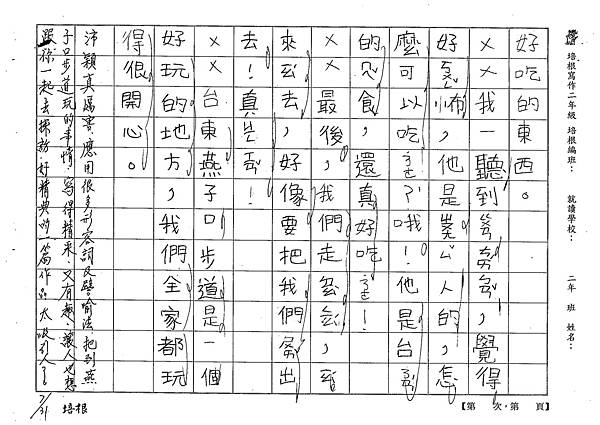 培根寫作二年級 培根編班： 就讀學校： 二年 班 姓名：
好吃的東西。
××我一聽到，覺得
好怖，他是人的，怎
麼可以吃？哦！他是台
的食，還真好吃！
××最後，我們走
來去，好像要把我們出
去！真！
××台東燕子口步道是一個
好玩的地方，我們全家都玩
得很開心。
沛穎真厲害，應用很多形容詞及譬喻法，把到燕
子口步道玩的事情，寫得精采又有趣，讓人也想
跟妳一起去探訪，好精典的一篇作品，太吸引人了
7/31 培根
【第 次，第 頁】